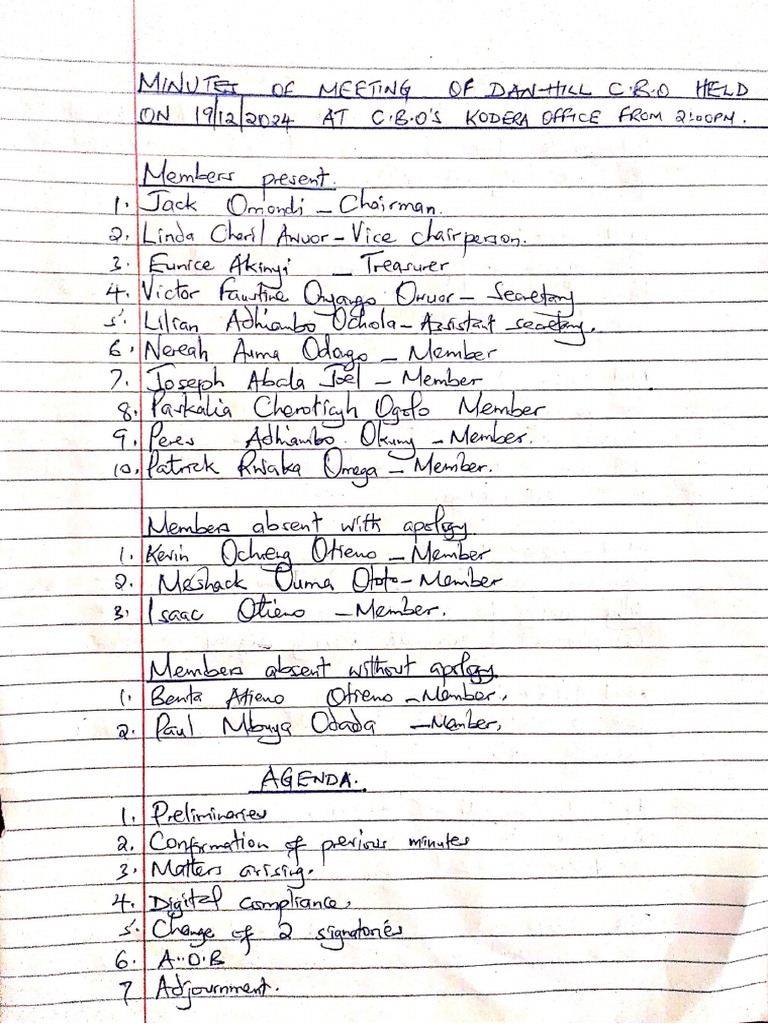 MINUTES OF MEETING OF DAN-HILL C.B.O HELD
ON 19/12/2024 AT C.B.O'S KODERA OFFICE FROM 2:00PM.
Members present.
1. Jack Omondi - Chairman.
2. Linda Cheril Awuor - Vice chairperson.
3. Eunice Akinyi - Treasurer
4. Victor Faustine Onyango Owuor - Secretary
5. Lilian Adhiambo Ochola - Assistant secretary.
6. Nereah Auma Odago - Member
7. Joseph Abala Joel - Member
8. Paskalia Cherotich Ogolo Member
9. Peres Adhiambo Okumu - Member.
10. Patrick Rwaka Omega - Member.
Members absent with apology
1. Kevin Ochieng Otieno - Member
2. Meshack Ouma Ototo - Member
3. Isaac Otieno - Member.
Members absent without apology.
1. Benta Atieno Otieno - Member.
2. Paul Mbuya Odada - Member.
AGENDA.
1. Preliminaries
2. Confirmation of previous minutes
3. Matters arising.
4. Digital compliance.
5. Change of 2 signatories
6. A.O.B
7 Adjournment.